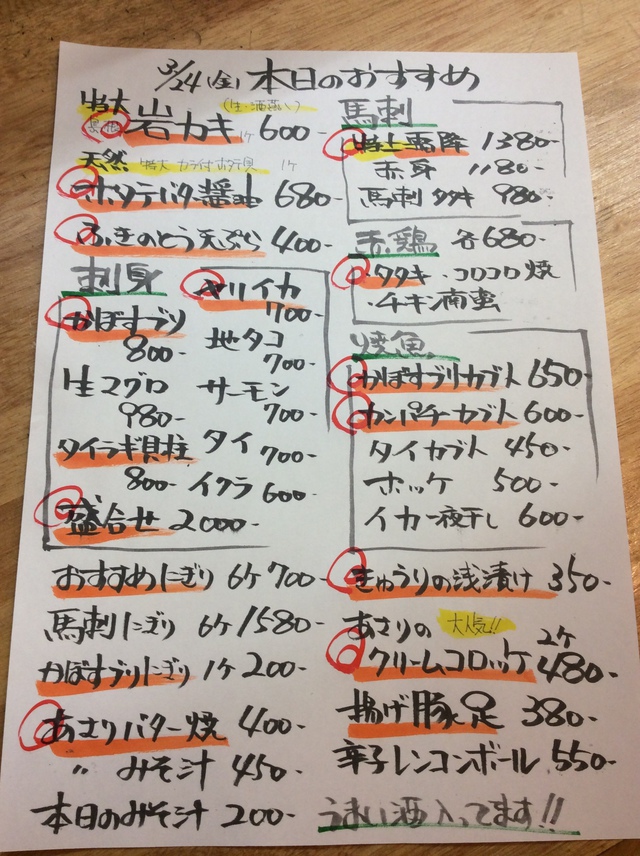 3/24(金)本日のおすすめ
特大 (生・酒蒸し)
岩カキ 1ケ 600-
天然 特大 カラ付ホタテ貝 1ケ
ホタテバター醤油 680-
ふきのとう天ぷら 400-
刺身
ヤリイカ
700-
かぼすブリ
800-
地タコ
700-
生マグロ
980-
サーモン
700-
タイラギ貝柱
800-
タイ 700-
イクラ 600-
盛合せ 2000-
おすすめにぎり 6ケ 700-
馬刺にぎり 6ケ 1580-
かぼすブリにぎり 1ケ 200-
あさりバター焼 400-
〃 みそ汁 450-
本日のみそ汁 200-
馬刺
特上霜降 1380-
赤身 1180-
馬刺タタキ 980-
赤鶏 各680-
・タタキ ・コロコロ焼
・チキン南蛮
焼魚
かぼすブリカブト 650-
カンパチカブト 600-
タイカブト 450-
ホッケ 500-
イカ一夜干し 600-
きゅうりの浅漬け 350-
あさりの 大人気!!
クリームコロッケ 2ケ 480-
揚げ豚足 380-
辛子レンコンボール 550-
うまい酒入ってます!!